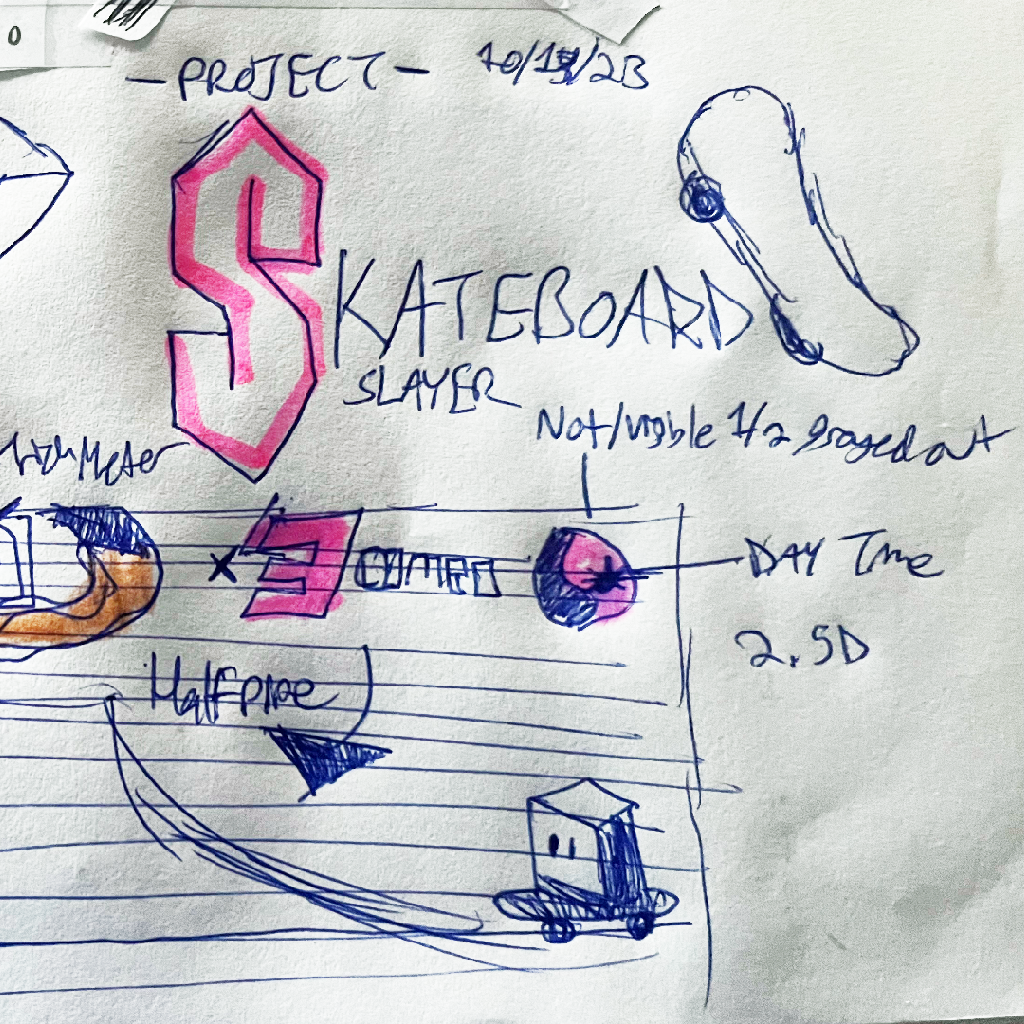 0
- PROJECT -
SKATEBOARD
SLAYER
Meter
Not/visible 1/2 grayed out
x 3 COMBO
DAY Time
2.5D
Halfpipe